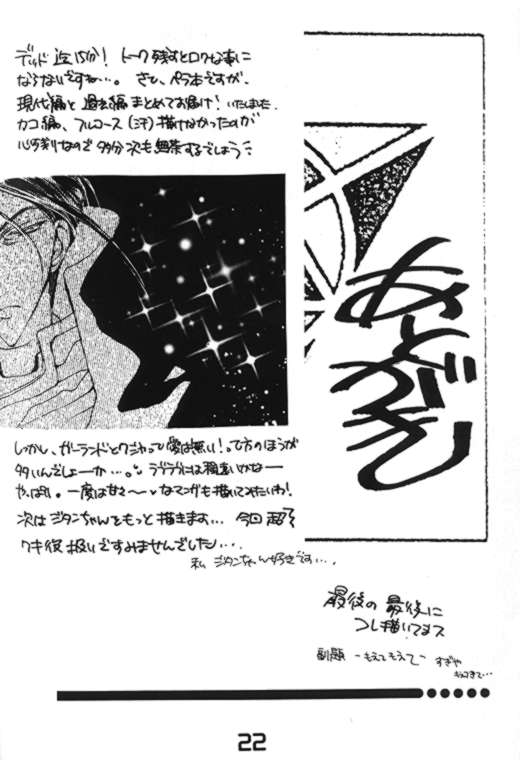 デッド 近 15分！ トーク残すとロクな事に
ならないですね…。 さて、ペラ本ですが、
現代編と過去編まとめてお届け！いたしました
カコ編、フルコース（汗）描けなかったのが
心残りなので 多分次も無茶するでしょう
あとがき
しかし、ガーランドとクジャって愛は無い！って方のほうが
多いんでしょーか…。ラブラブには程遠いかなー
やっぱり。一度は甘々～なマンガも描いてみたいわ！
次はジタンちゃんをもっと描きます… 今回 超
ワキ役 扱いですみませんでした…
私 ジタンちゃん好きです…
最後の最後に
コレ描いてマス
副題 -もえてもえて-
22